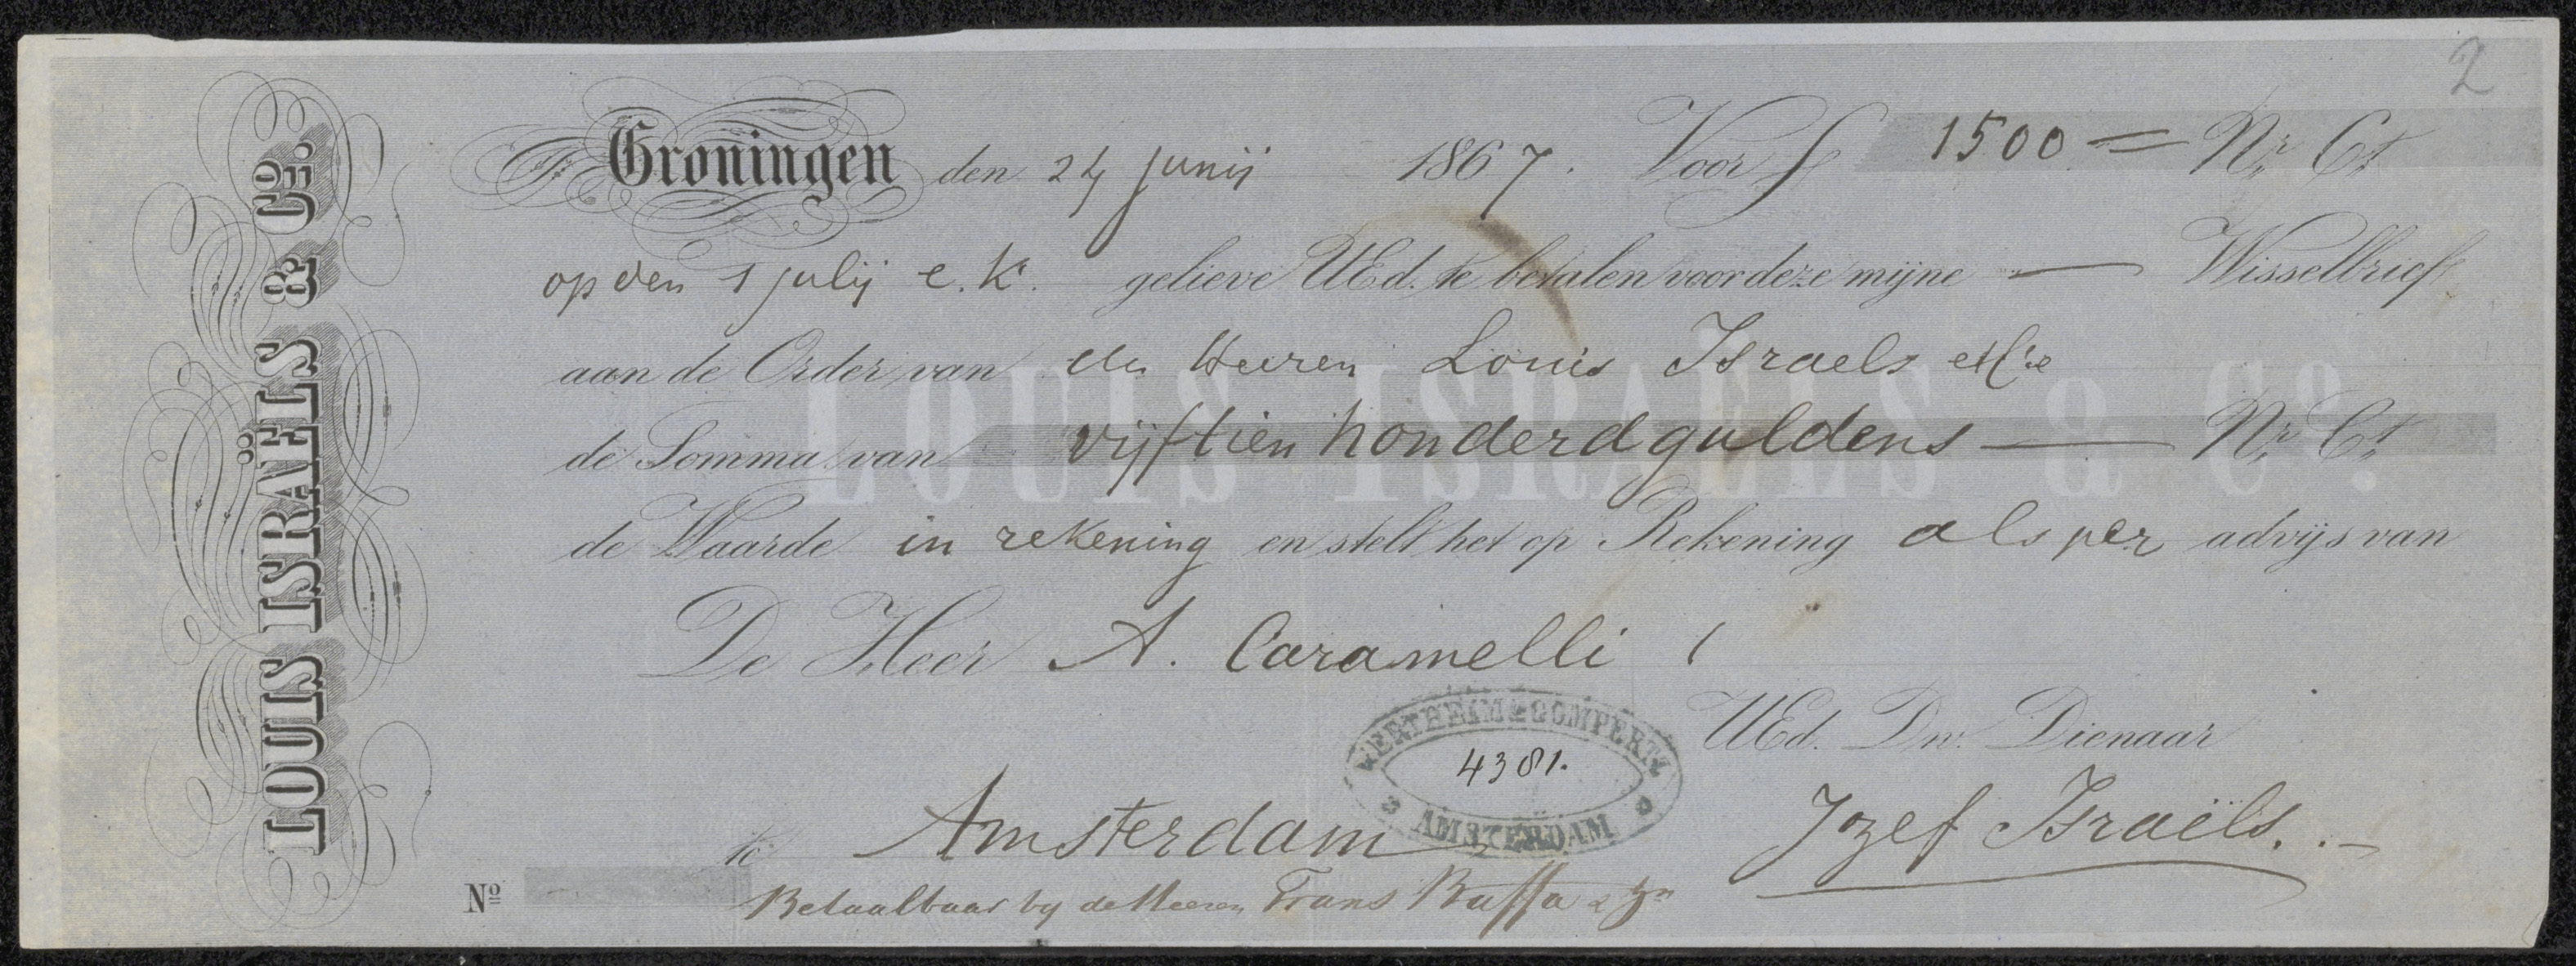 2
LOUIS ISRAËLS & Co.
Groningen den 24 Junij 1867. Voor f 1500 = Nr. Ct.
op den 1 Julij e.k. gelieve UEd. te betalen voor deze mijne — Wisselbrief
aan de Order van de Heeren Louis Israels et Cie
de Somma van vijftien honderd guldens — Nr. Ct.
LOUIS ISRAËLS & Co.
de Waarde in rekening en stelt het op Rekening als per advijs van
De Heer A. Caramelli
UEd. Dw. Dienaar
WERTHEIM & GOMPERTZ
4381.
AMSTERDAM
te Amsterdam
Jozef Israëls.
No
Betaalbaar by de Heeren Frans Buffa & Zn